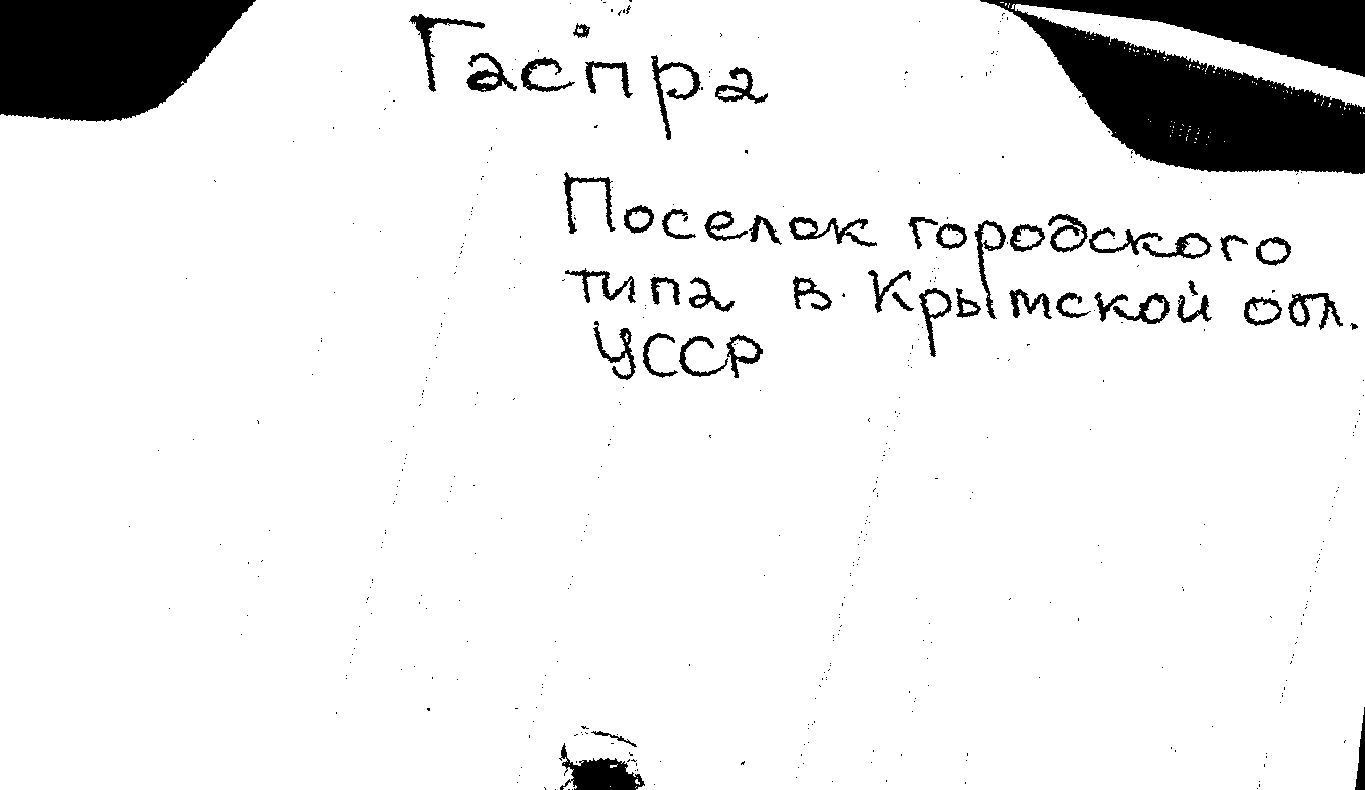 Гаспра
Поселок городского
типа в Крымской обл.
УССР